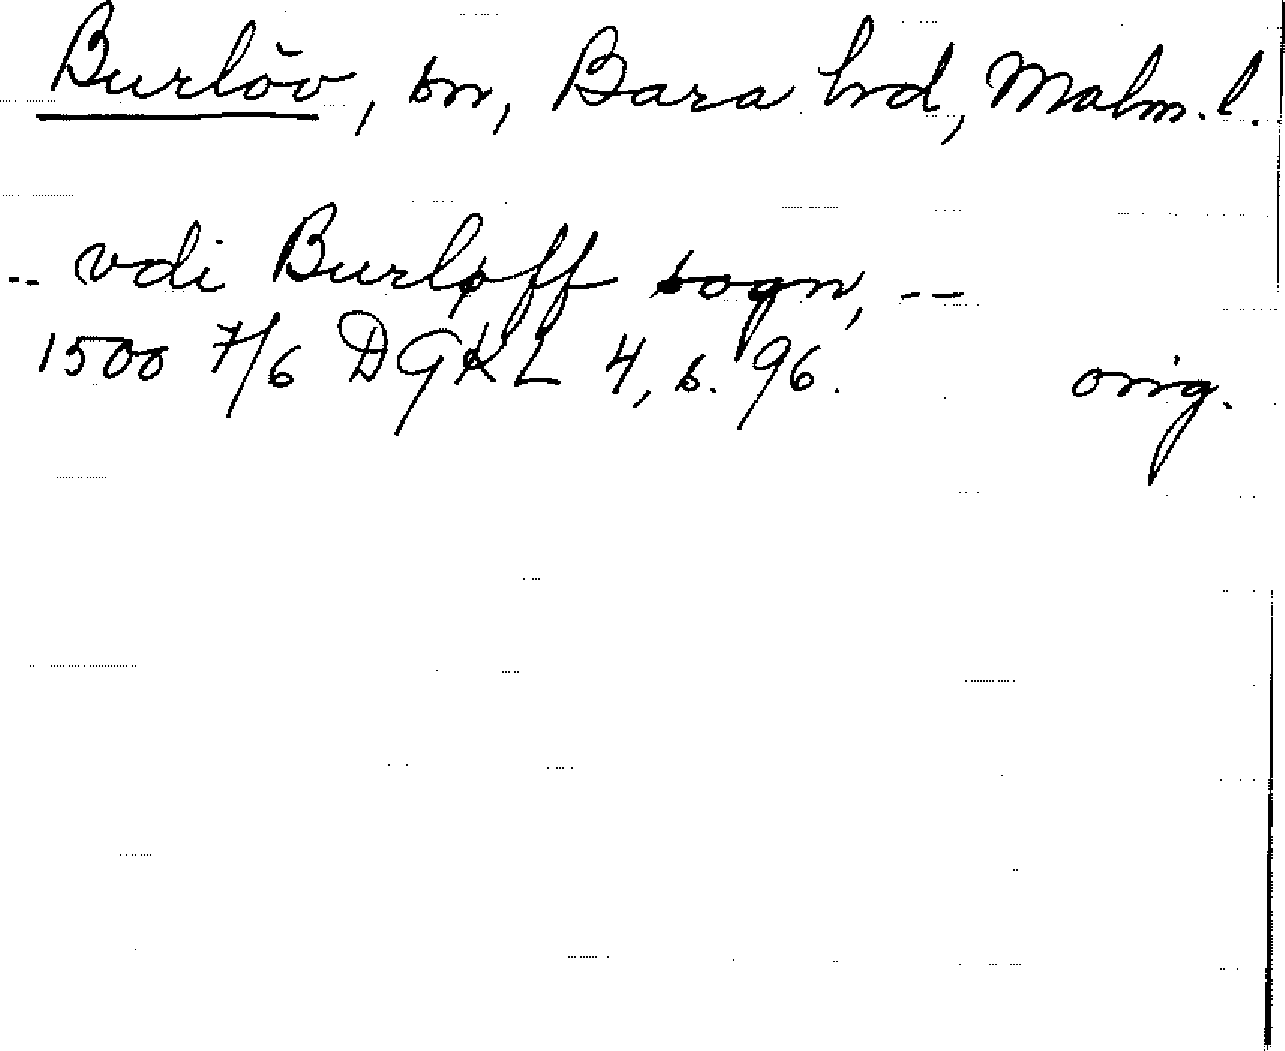 Burlöv, sn, Bara hrd, Malm. l.
-- vdi Burløff sogn, --
1500 7/6 DGKL 4, s. 96. orig.